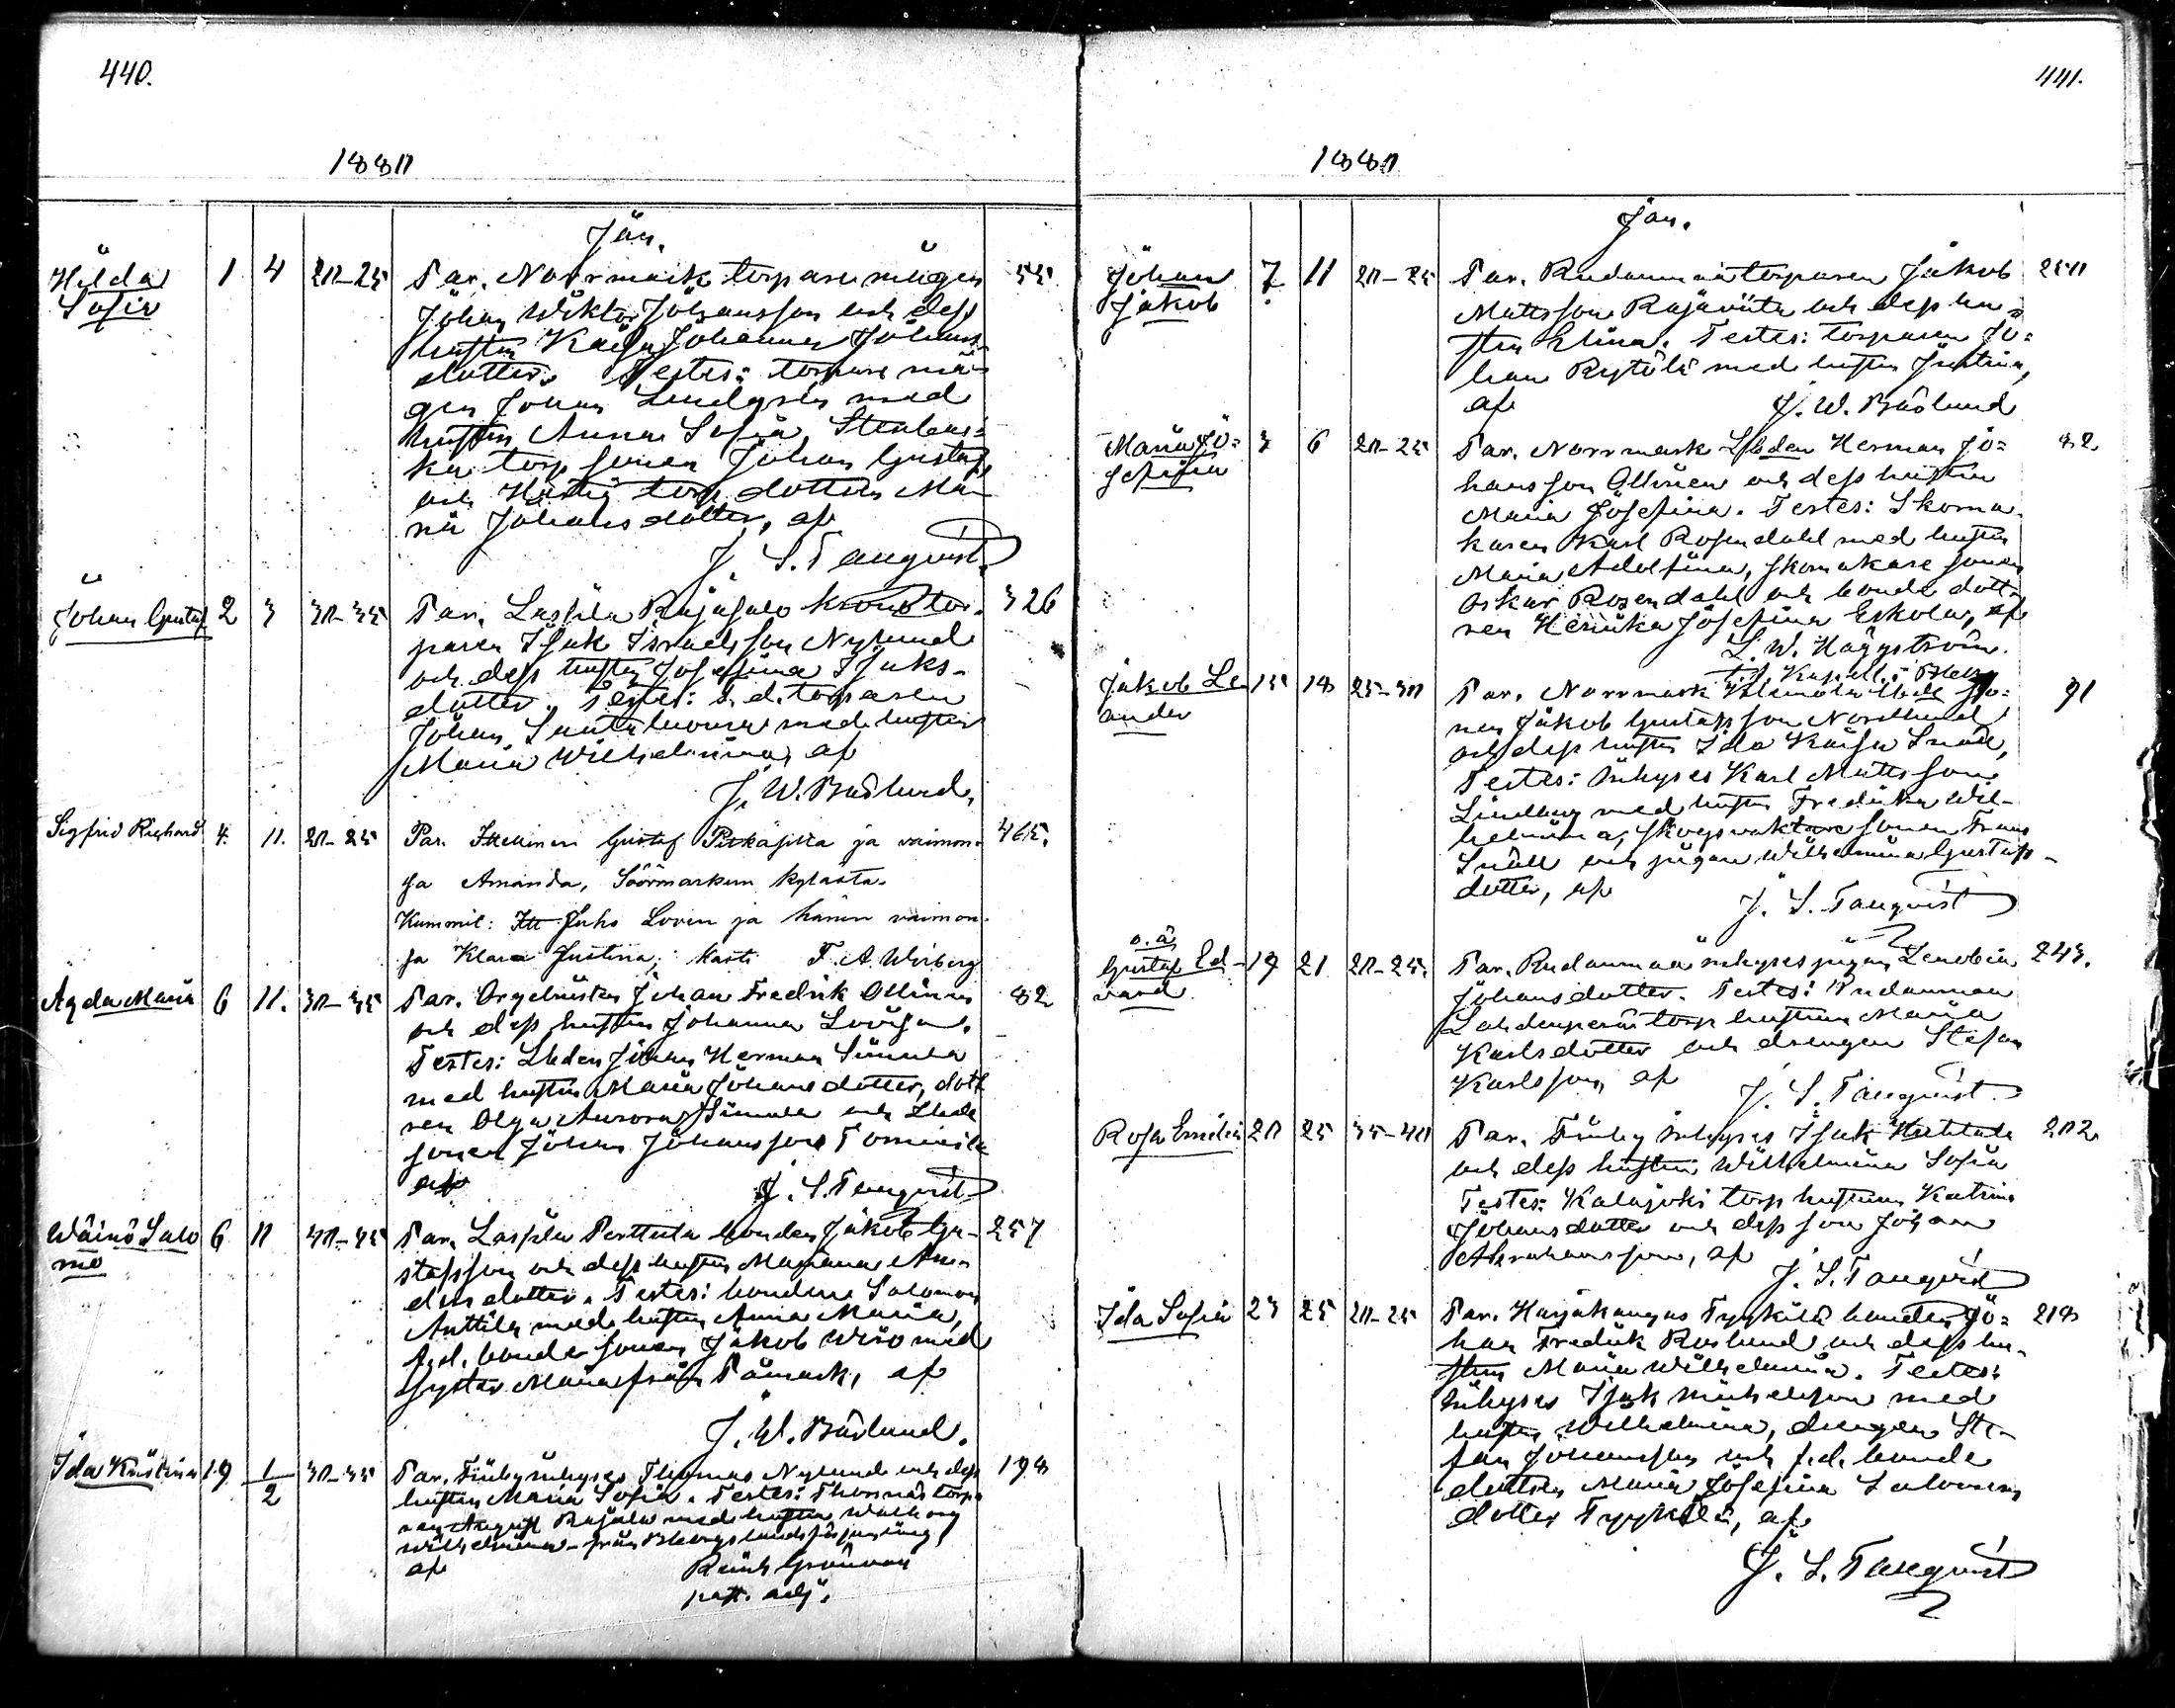 440.
1880
Jan.
Hilda 1 4 20-25 Par. Norrmark torpare mågen 55
Sofia Johan Wiktor Johansson och dess
hustru Kaisa Johanna Johans-
dotter. Testes: torpare må-
gen Johan Lindqvist med
hustru Anna Sofia,
torp sonen Johan Gustaf
och torp dottren Ma-
ria Johansdotter, af
J. S. Tanqvist
Johan Gustaf 2 3 30-35 Par. Lassila Rajasalo krono tor- 326
paren Isak Israelsson Nylund
och dess hustru Josefina Isaks-
dotter. Testes: s. d. torparen
Johan med hustru
Maria Wilhelmina, af
J. W. Båslund.
Sigfrid Rickard 4. 11. 20-25 Par. Itsellinen Gustaf Pitkäjska ja vaimon- 465.
sa Amanda, Söörmarkun kylästä.
Kummit: Itt Juho Loven ja hänen vaimon-
sa Klara Justina; kasti F. A. Wirberg
Agda Maria 6 11. 30-35 Par. Orgelnisten Johan Fredrik Ollinen 82
och dess hustru Johanna Lovisa.
Testes: Lbden Johan Herman Simula
med hustru Maria Johansdotter, dott
ren Olga Aurora Simula och Lbde
sonen Johan Johansson Tommila
af J. S. Tanqvist
Wäinö Salo 6 11 40-45 Par. Lassila Perttula bonden Jakob Gu- 257
mo stafsson och dess hustru Mariana An-
ders dotter. Testes: bonden Salomon
Anttila med hustru Anna Maria,
f.d. bonde sonen Jakob Wiro med
syster Maria från Påmark, af
J. W. Båslund.
Ida Kristina 19 1/2 30-35 Par. Finby inhyses Thomas Nylund och dess 198
hustru Maria Sofia. Testes: torpa
ren August Rajala med hustru Walborg
Wilhelmina från Bbergs landsförsamling
af Reinh Grönvall
past. adj.
441.
1880
Jan.
Johan 7 11 20-25 Par. Rudanmaa torparen Jakob 250
Jakob Mattsson Rajaniitu och dess hu-
stru Elina. Testes: torparen Jo=
han Rytölä med hustru Justina,
af J. W. Båslund
Maria Jo= 3 6 20-25 Par. Norrmark Lbden Herman Jo= 82
sefina hansson Ollinen och dess hustru
Maria Josefina. Testes: Skoma-
karen Karl Rosendahl med hustru
Maria Adolfina, skomakare sonen
Oskar Rosendahl och bonde dott-
ren Henrika Josefina Eskola, af
L. W. Häggström.
t.f. Kapell. i Bberg
Jakob Le 15 18 25-30 Par. Norrmark Lbde so= 91
ander nen Jakob Gustafsson Nordlund
och dess hustru Ida Kaisa Snäll,
Testes: Inhyses Karl Mattsson
Lindberg med hustru Fredrika Wil-
helmina, skogsvaktare sonen Frans
Snäll och pigan Wilhelmina Gustafs-
dotter, af J. S. Tanqvist
o. ä.
Gustaf Ed- 19 21 20-25. Par. Rudanmaa inhyses pigan Zenobia 243.
vard Johansdotter. Testes: Rudanmaa
Lahdenperä torp hustrun Maria
Karlsdotter och drengen Stefan
Karlsson, af J. S. Tanqvist
Rosa Emilia 20 25 35-40 Par. Finby inhyses Isak Huhtala 202
och dess hustru Wilhelmina Sofia
Testes: Kalajoki torp hustrun Katrina
Johansdotter och dess son Johan
Abrahamsson, af
J. S. Tanqvist
Ida Sofia 23 25 20-25 Par. Harjakangas Tyykilä bonden Jo= 218
han Fredrik Roslund och dess hu-
stru Maria Wilhelmina. Testes:
Inhyses Isak Michelsson med
hustru Wilhelmina, drengen Ste-
fan Johansson och f.d. bonde
dottren Maria Josefina Salomons
dotter Tyykilä, af
J. S. Tanqvist